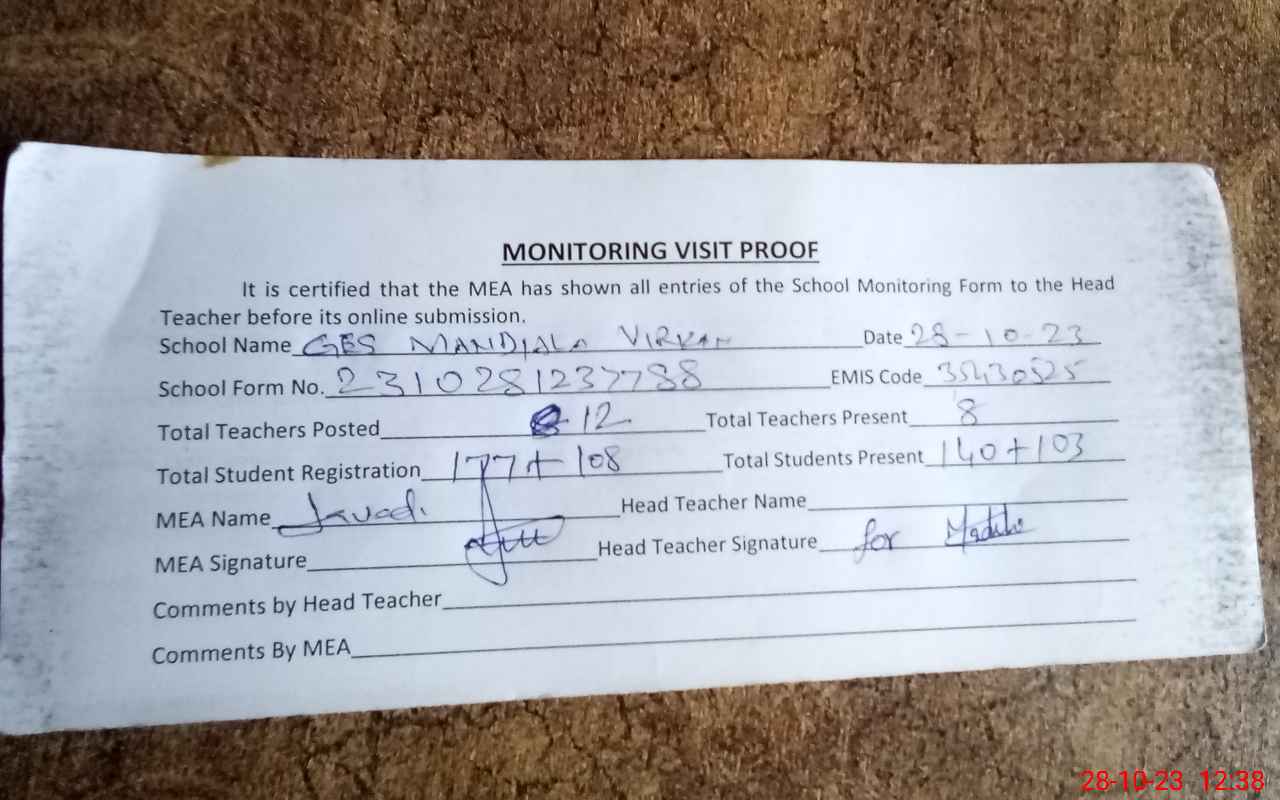 MONITORING VISIT PROOF
It is certified that the MEA has shown all entries of the School Monitoring Form to the Head
Teacher before its online submission.
School Name GES MANDIALA VIRKAN Date 28-10-23
School Form No. 2310281237788 EMIS Code 35430525
Total Teachers Posted 12 Total Teachers Present 8
Total Student Registration 177+108 Total Students Present 140+103
MEA Name Javad Head Teacher Name
MEA Signature Head Teacher Signature for
Comments by Head Teacher
Comments By MEA
28-10-23 12:38